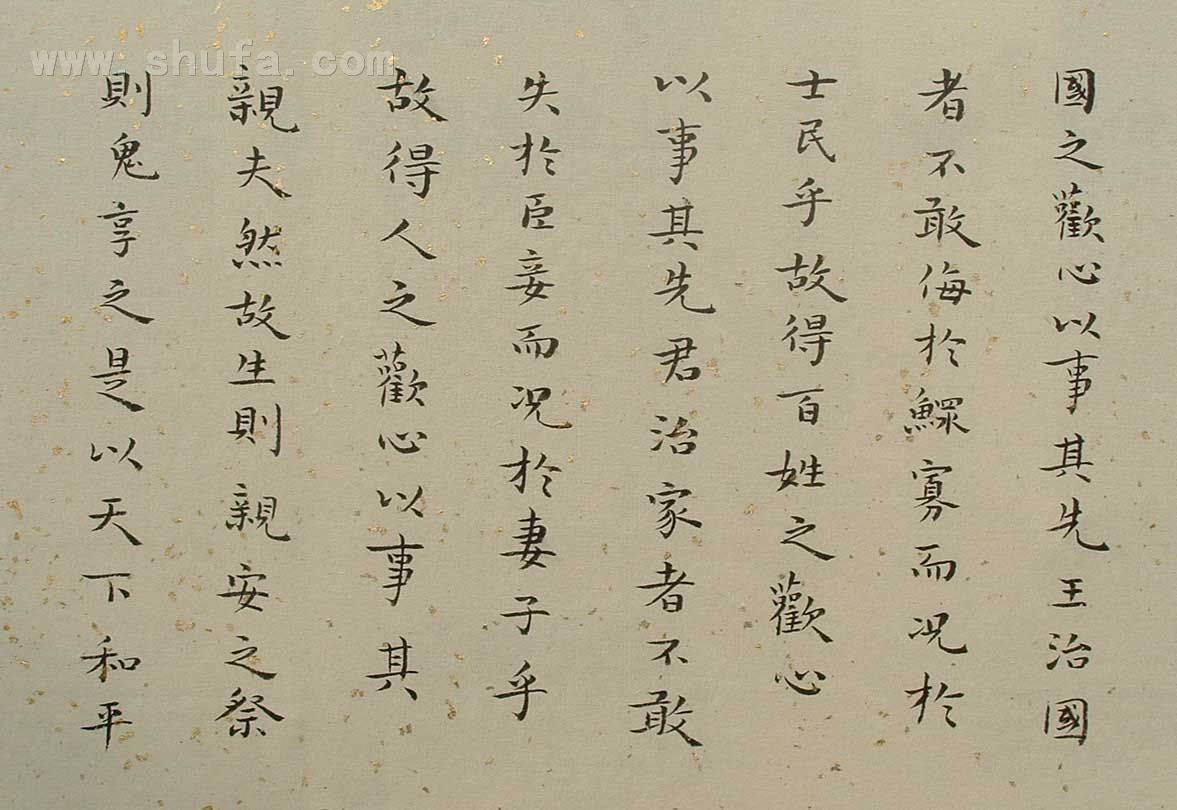 www.shufa.com
國之歡心以事其先王治國
者不敢侮於鰥寡而况於
士民乎故得百姓之歡心
以事其先君治家者不敢
失於臣妾而况於妻子乎
故得人之歡心以事其
親夫然故生則親安之祭
則鬼享之是以天下和平